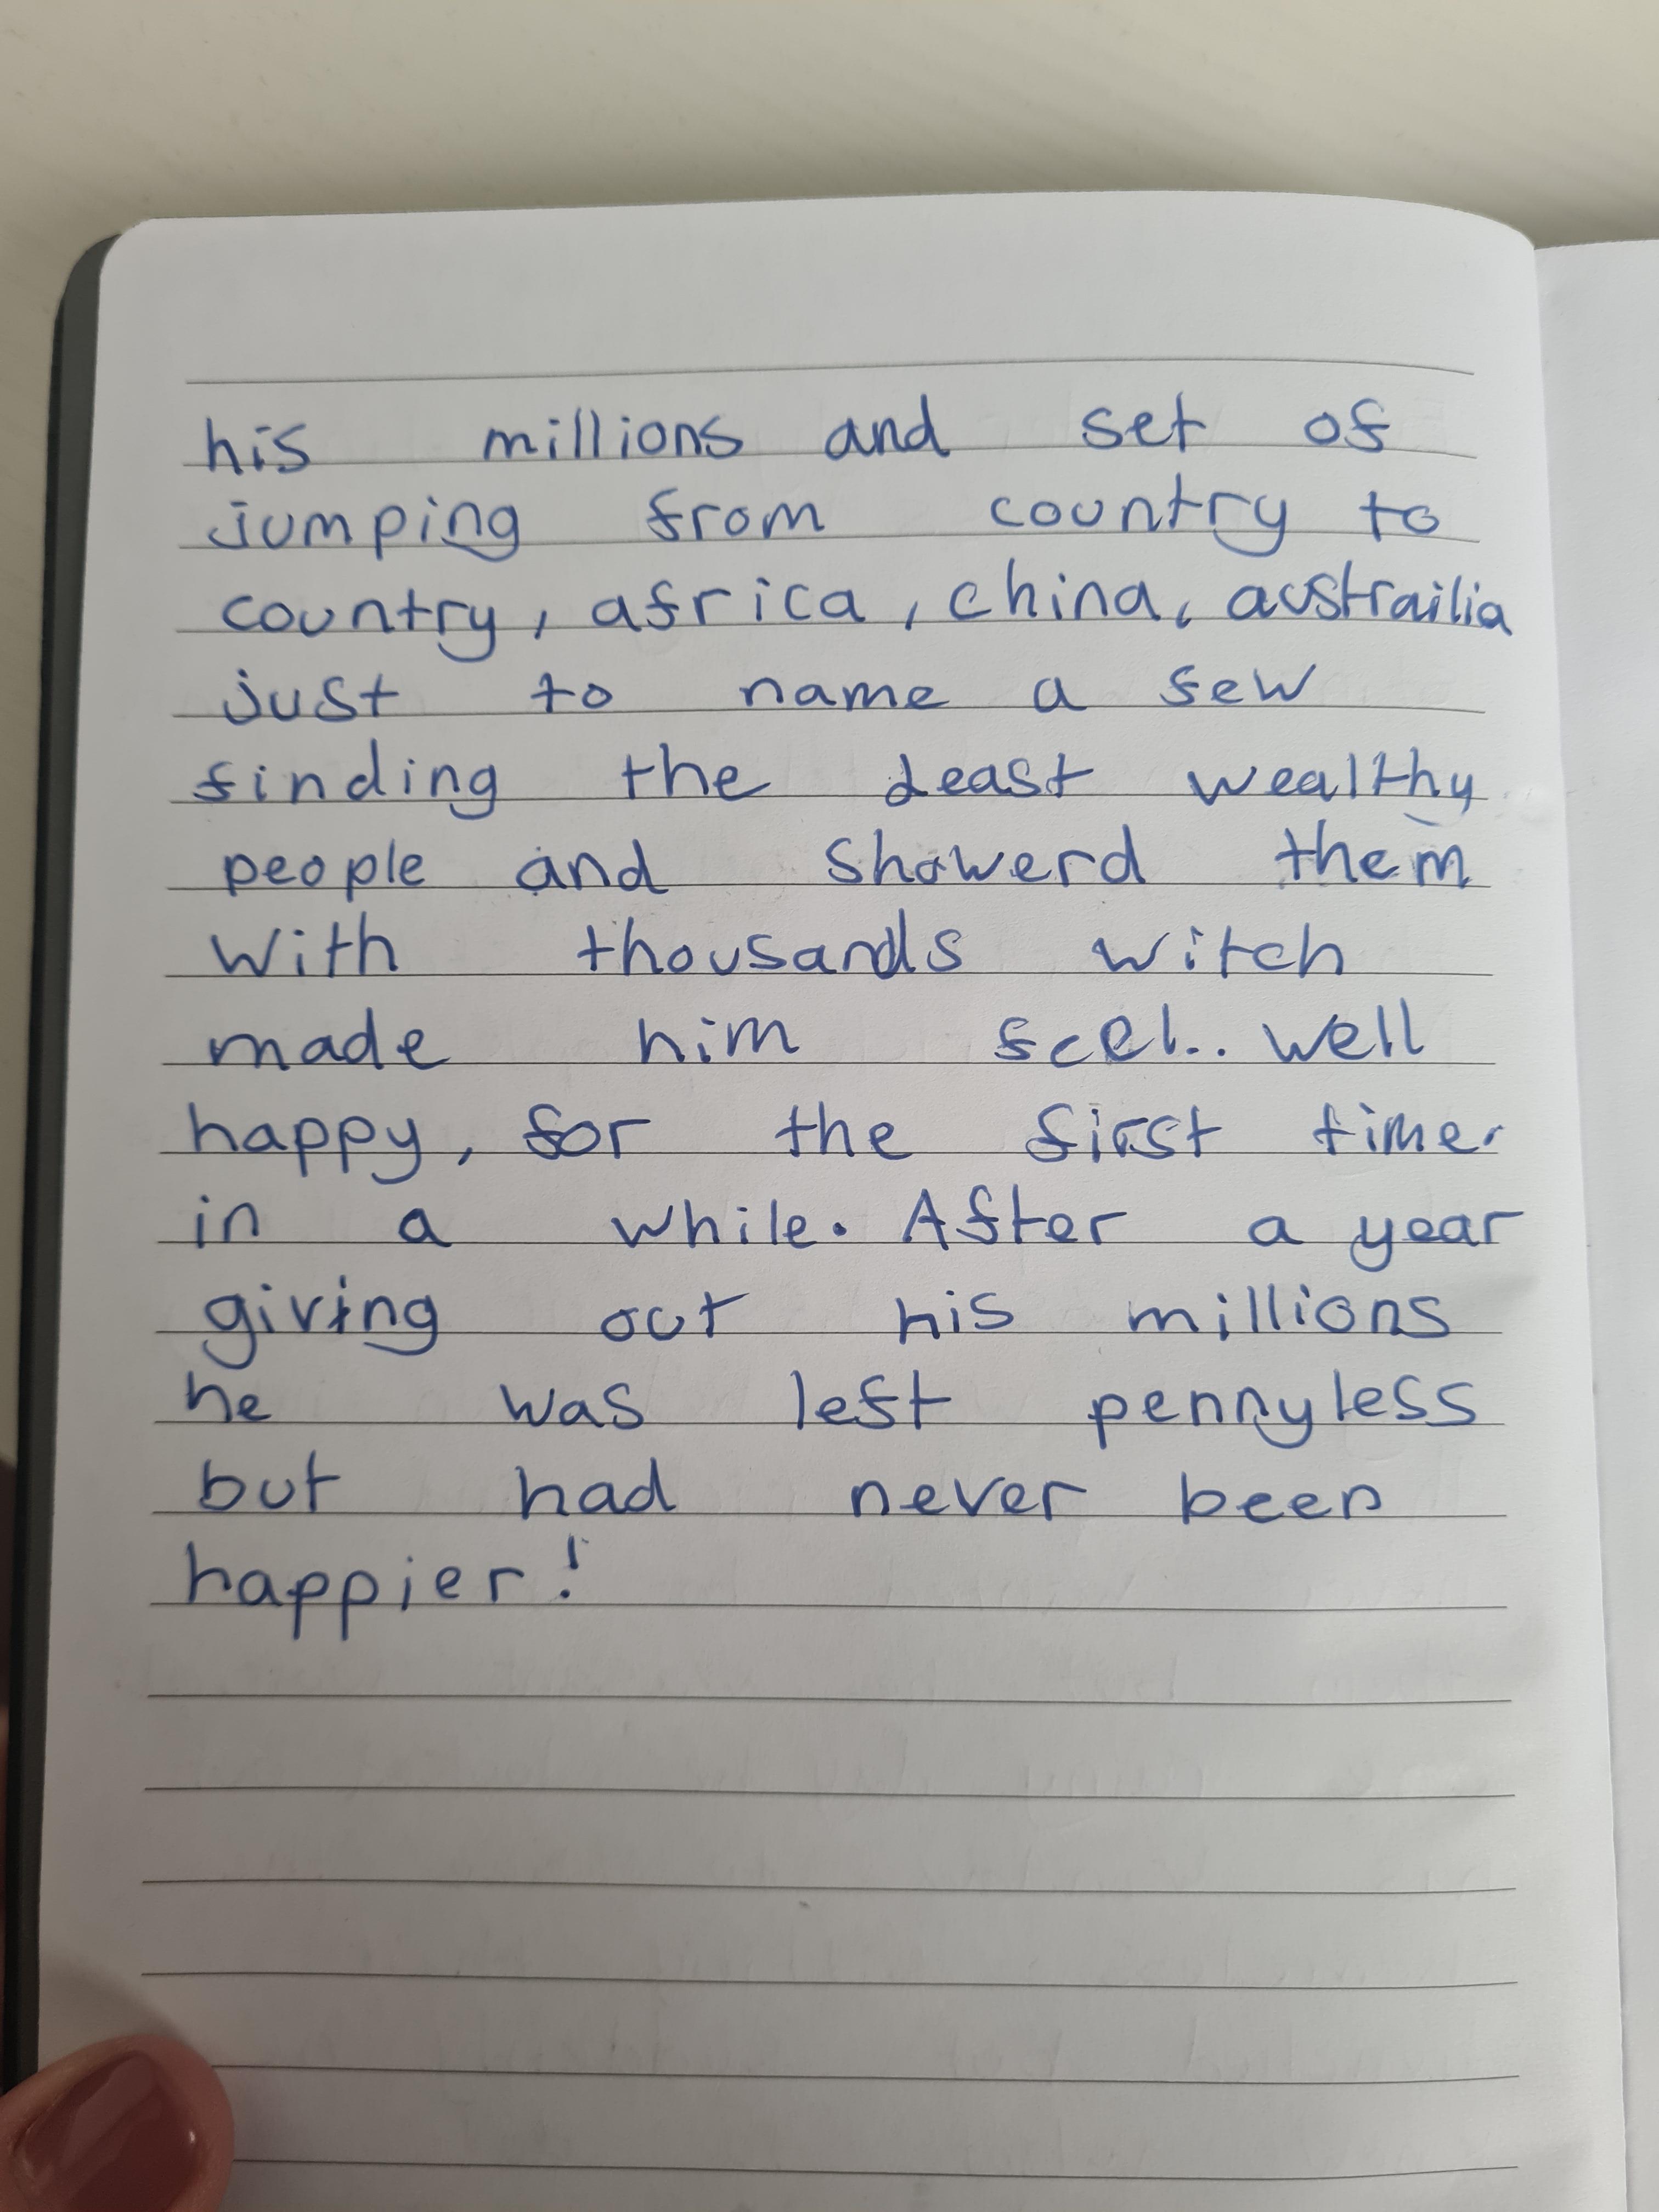 his millions and set of
jumping from country to
country, africa, china, austrailia
just to name a few
finding the least wealthy
people and showerd them
with thousands witch
made him feel.. well
happy, for the first time
in a while. After a year
giving out his millions
he was left pennyless
but had never been
happier!